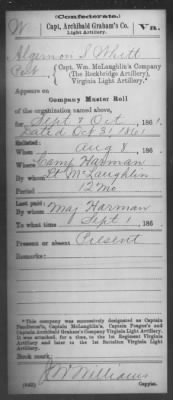 (Confederate.)
W Capt. Archibald Graham's Co. Va.
Light Artillery.
Algernon S Whitt
Pvt { Capt. Wm. McLaughlin's Company
(The Rockbridge Artillery),
Virginia Light Artillery.*
Appears on
Company Muster Roll
of the organization named above,
for Sept & Oct, 1861.
Dated Oct 31 1861
Enlisted:
When Aug 8, 186 .
Where Camp Harman
By whom Lt McLaughlin
Period 12 Mo
Last paid:
By whom Maj Harman
To what time Sept 1, 186 .
Present or absent Present
Remarks:
*This company was successively designated as Captain
Pendleton's, Captain McLaughlin's, Captain Poague's and
Captain Archibald Graham's Company Virginia Light Artillery.
It was attached, for a time, to the 1st Regiment Virginia
Artillery and later to the 1st Battalion Virginia Light
Artillery.
Book mark:
J W Williams
(642) Copyist.